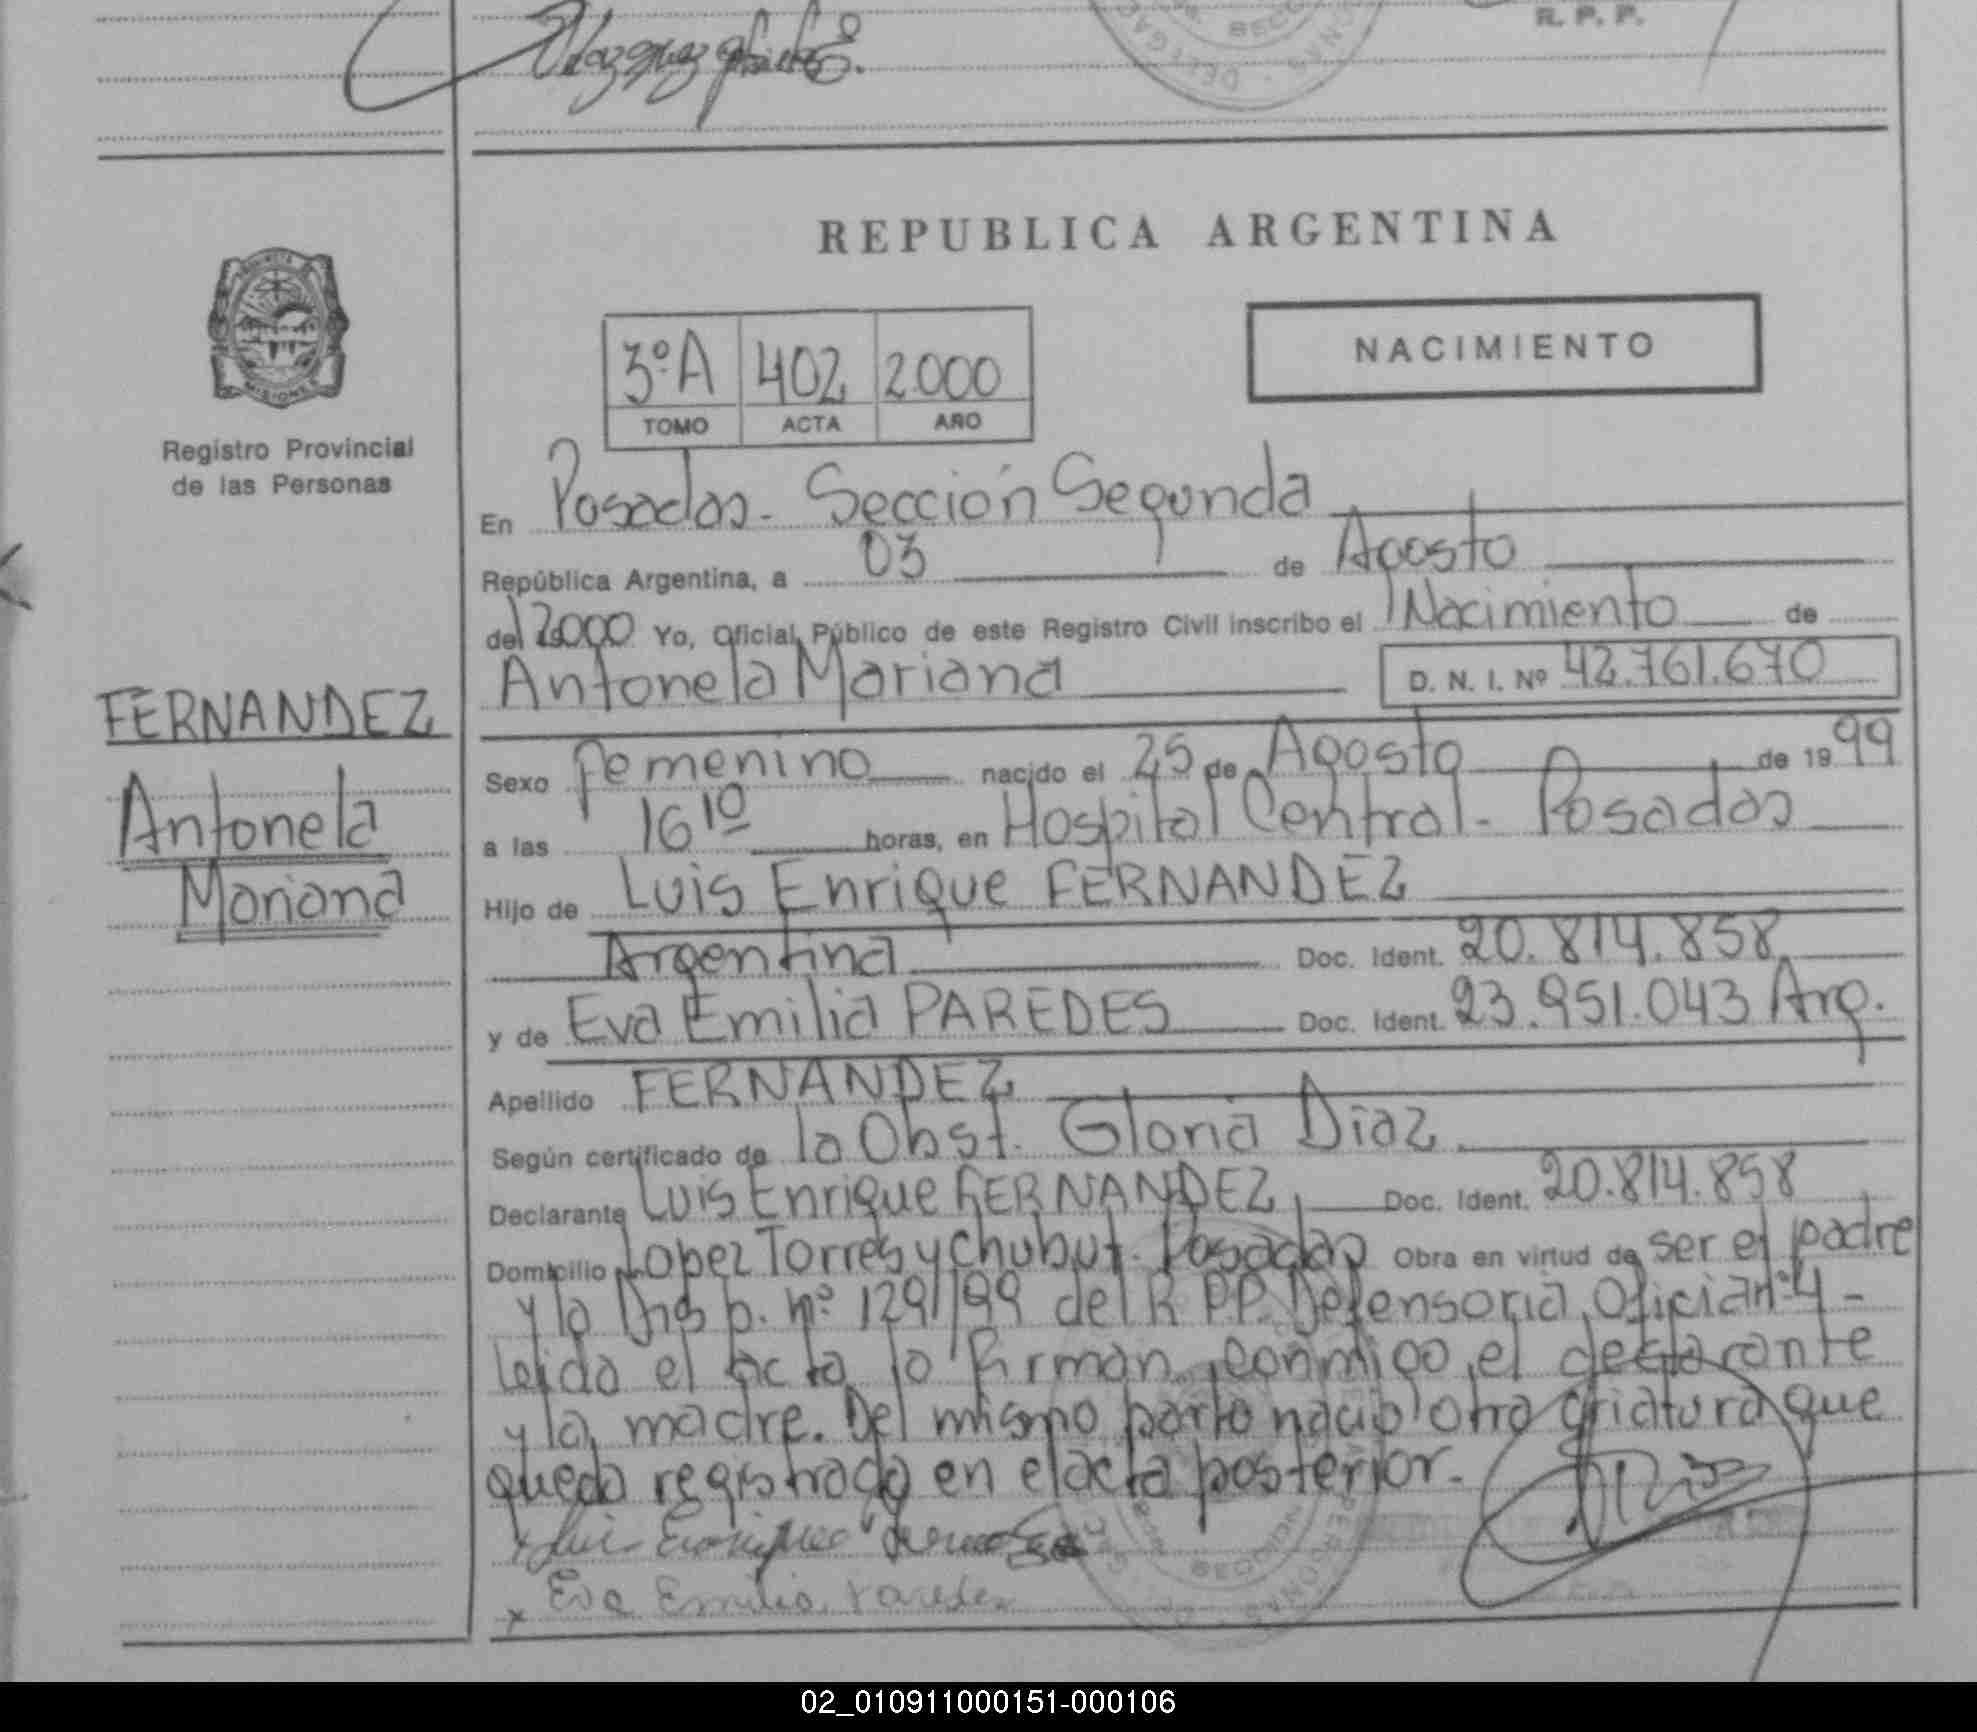 Vazquez
SECC
DELEGA
R. P. P.
REPUBLICA ARGENTINA
PROVINCIA
MISIONES
Registro Provincial
de las Personas
3º A 402 2.000
TOMO ACTA AÑO
NACIMIENTO
En Posadas - Sección Segunda
República Argentina, a 03 de Agosto
del 2000 Yo, Oficial Público de este Registro Civil inscribo el Nacimiento de
Antonela Mariana D. N. I. Nº 42.761.670
FERNANDEZ
Antonela
Mariana
Sexo femenino nacido el 25 de Agosto de 1999
a las 16 10 horas, en Hospital Central - Posadas
Hijo de Luis Enrique FERNANDEZ
Argentina Doc. Ident. 20.814.858
y de Eva Emilia PAREDES Doc. Ident. 23.951.043 Arg.
Apellido FERNANDEZ
Según certificado de la Obst. Gloria Diaz
Declarante Luis Enrique FERNANDEZ Doc. Ident. 20.814.858
Domicilio Lopez Torres y Chubut. Posadas Obra en virtud de ser el padre
y la Disp. nº 1291/99 del R.P.P. Defensoria Oficial nº 4 -
Leido el acta lo firman conmigo el declarante
y la madre. Del mismo parto nació otra criatura que
queda registrada en el acta posterior.
x Luis Enrique Fernandez
x Eva Emilia Paredes
SECCION
02_010911000151-000106